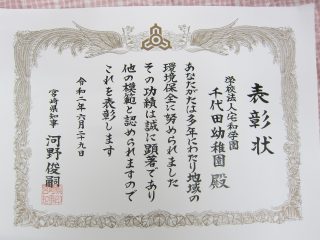 表彰状
学校法人宅和学園
千代田幼稚園 殿
あなたがたは多年にわたり地域の
環境保全に努められました
その功績は誠に顕著であり
他の模範と認められますので
これを表彰します
令和二年六月二十九日
宮崎県知事 河野俊嗣